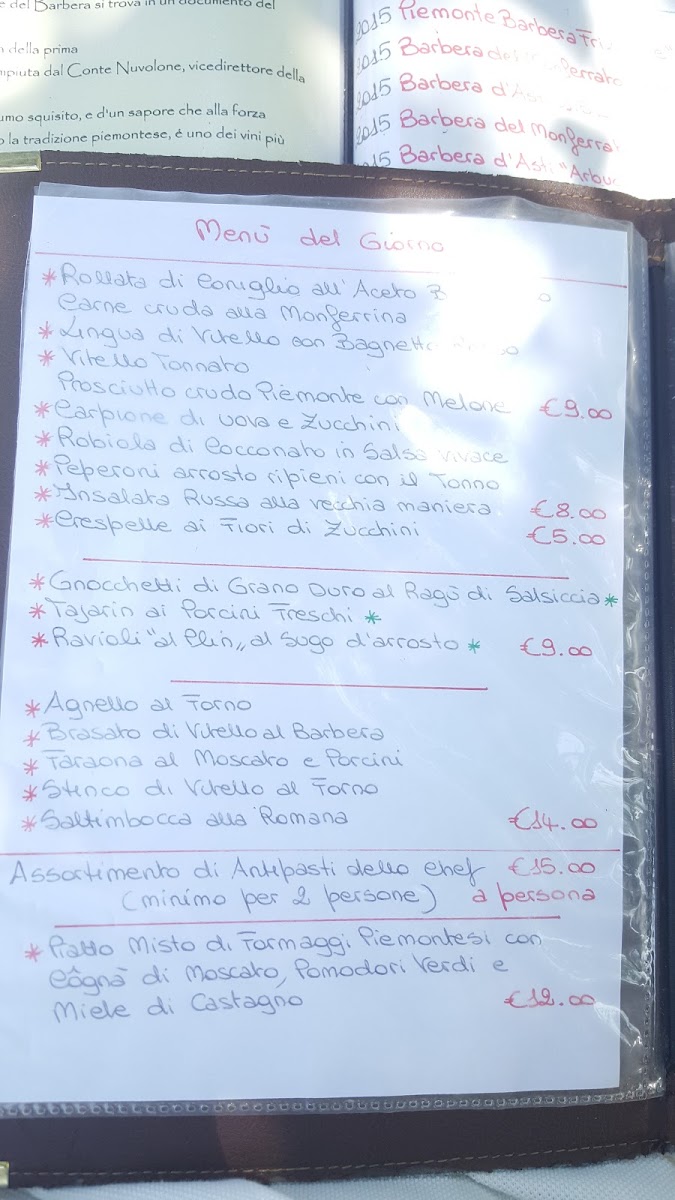 del Barbera si trova in un documento del
della prima
dal Conte Nuvolone, vicedirettore della
squisito, e d'un sapore che alla forza
la tradizione piemontese, è uno dei vini più
2015 Piemonte Barbera
2015 Barbera
2015 Barbera
2015 Barbera del
Barbera d'Asti
Menù del Giorno
*Rollata di Coniglio all'Aceto
Carne cruda alla Monferrina
*Lingua di Vitello con
*Vitello Tonnato
Prosciutto crudo Piemonte con Melone €9.00
*Carpione di uova e Zucchini
*Robiola di Cocconato in Salsa vivace
*Peperoni arrosto ripieni con il Tonno
*Insalata Russa alla vecchia maniera €8.00
*Crespelle ai Fiori di Zucchini €5.00
*Gnocchetti di Grano Duro al Ragù di Salsiccia*
*Tajarin ai Porcini Freschi *
*Ravioli "al Plin,, al Sugo d'arrosto * €9.00
*Agnello al Forno
*Brasato di Vitello al Barbera
*Faraona al Moscato e Porcini
*Stinco di Vitello al Forno
*Saltimbocca alla Romana €14.00
Assortimento di Antipasti dello chef €15.00
(minimo per 2 persone) a persona
*Piatto Misto di Formaggi Piemontesi con
Côgnà di Moscato, Pomodori Verdi e
Miele di Castagno €12.00